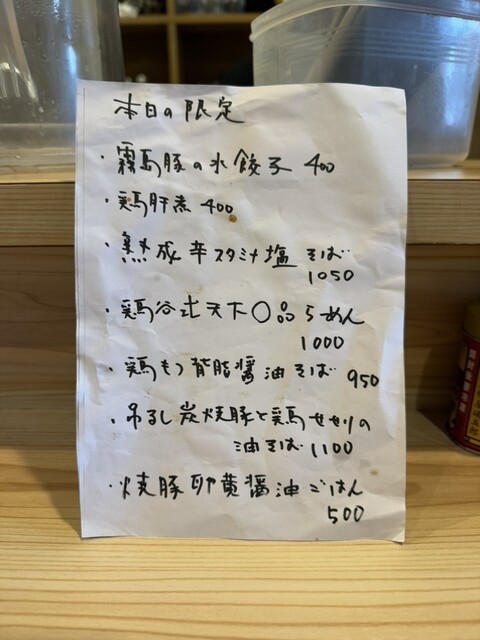 本日の限定
・霧島豚の水餃子 400
・鶏肝煮 400
・熟成辛スタミナ塩そば
1050
・鶏谷式天下〇品らーめん
1000
・鶏もつ背脂醤油そば 950
・吊るし炭焼豚と鶏せせりの
油そば 1100
・焼豚卵黄醤油ごはん
500